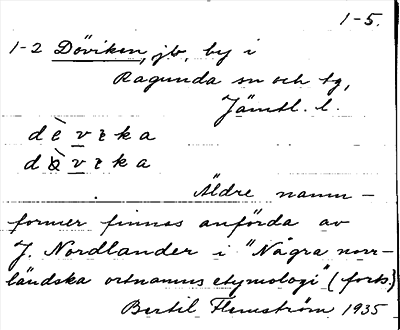 1-5.
1-2 Döviken, jb, by i
Ragunda sn och tg,
Jämtl. l.
dè vıka
dòvıka
Äldre namn-
former finnas anförda av
J. Nordlander i "Några norr-
ländska ortnamns etymologi" (forts.)
Bertil Flemström 1935